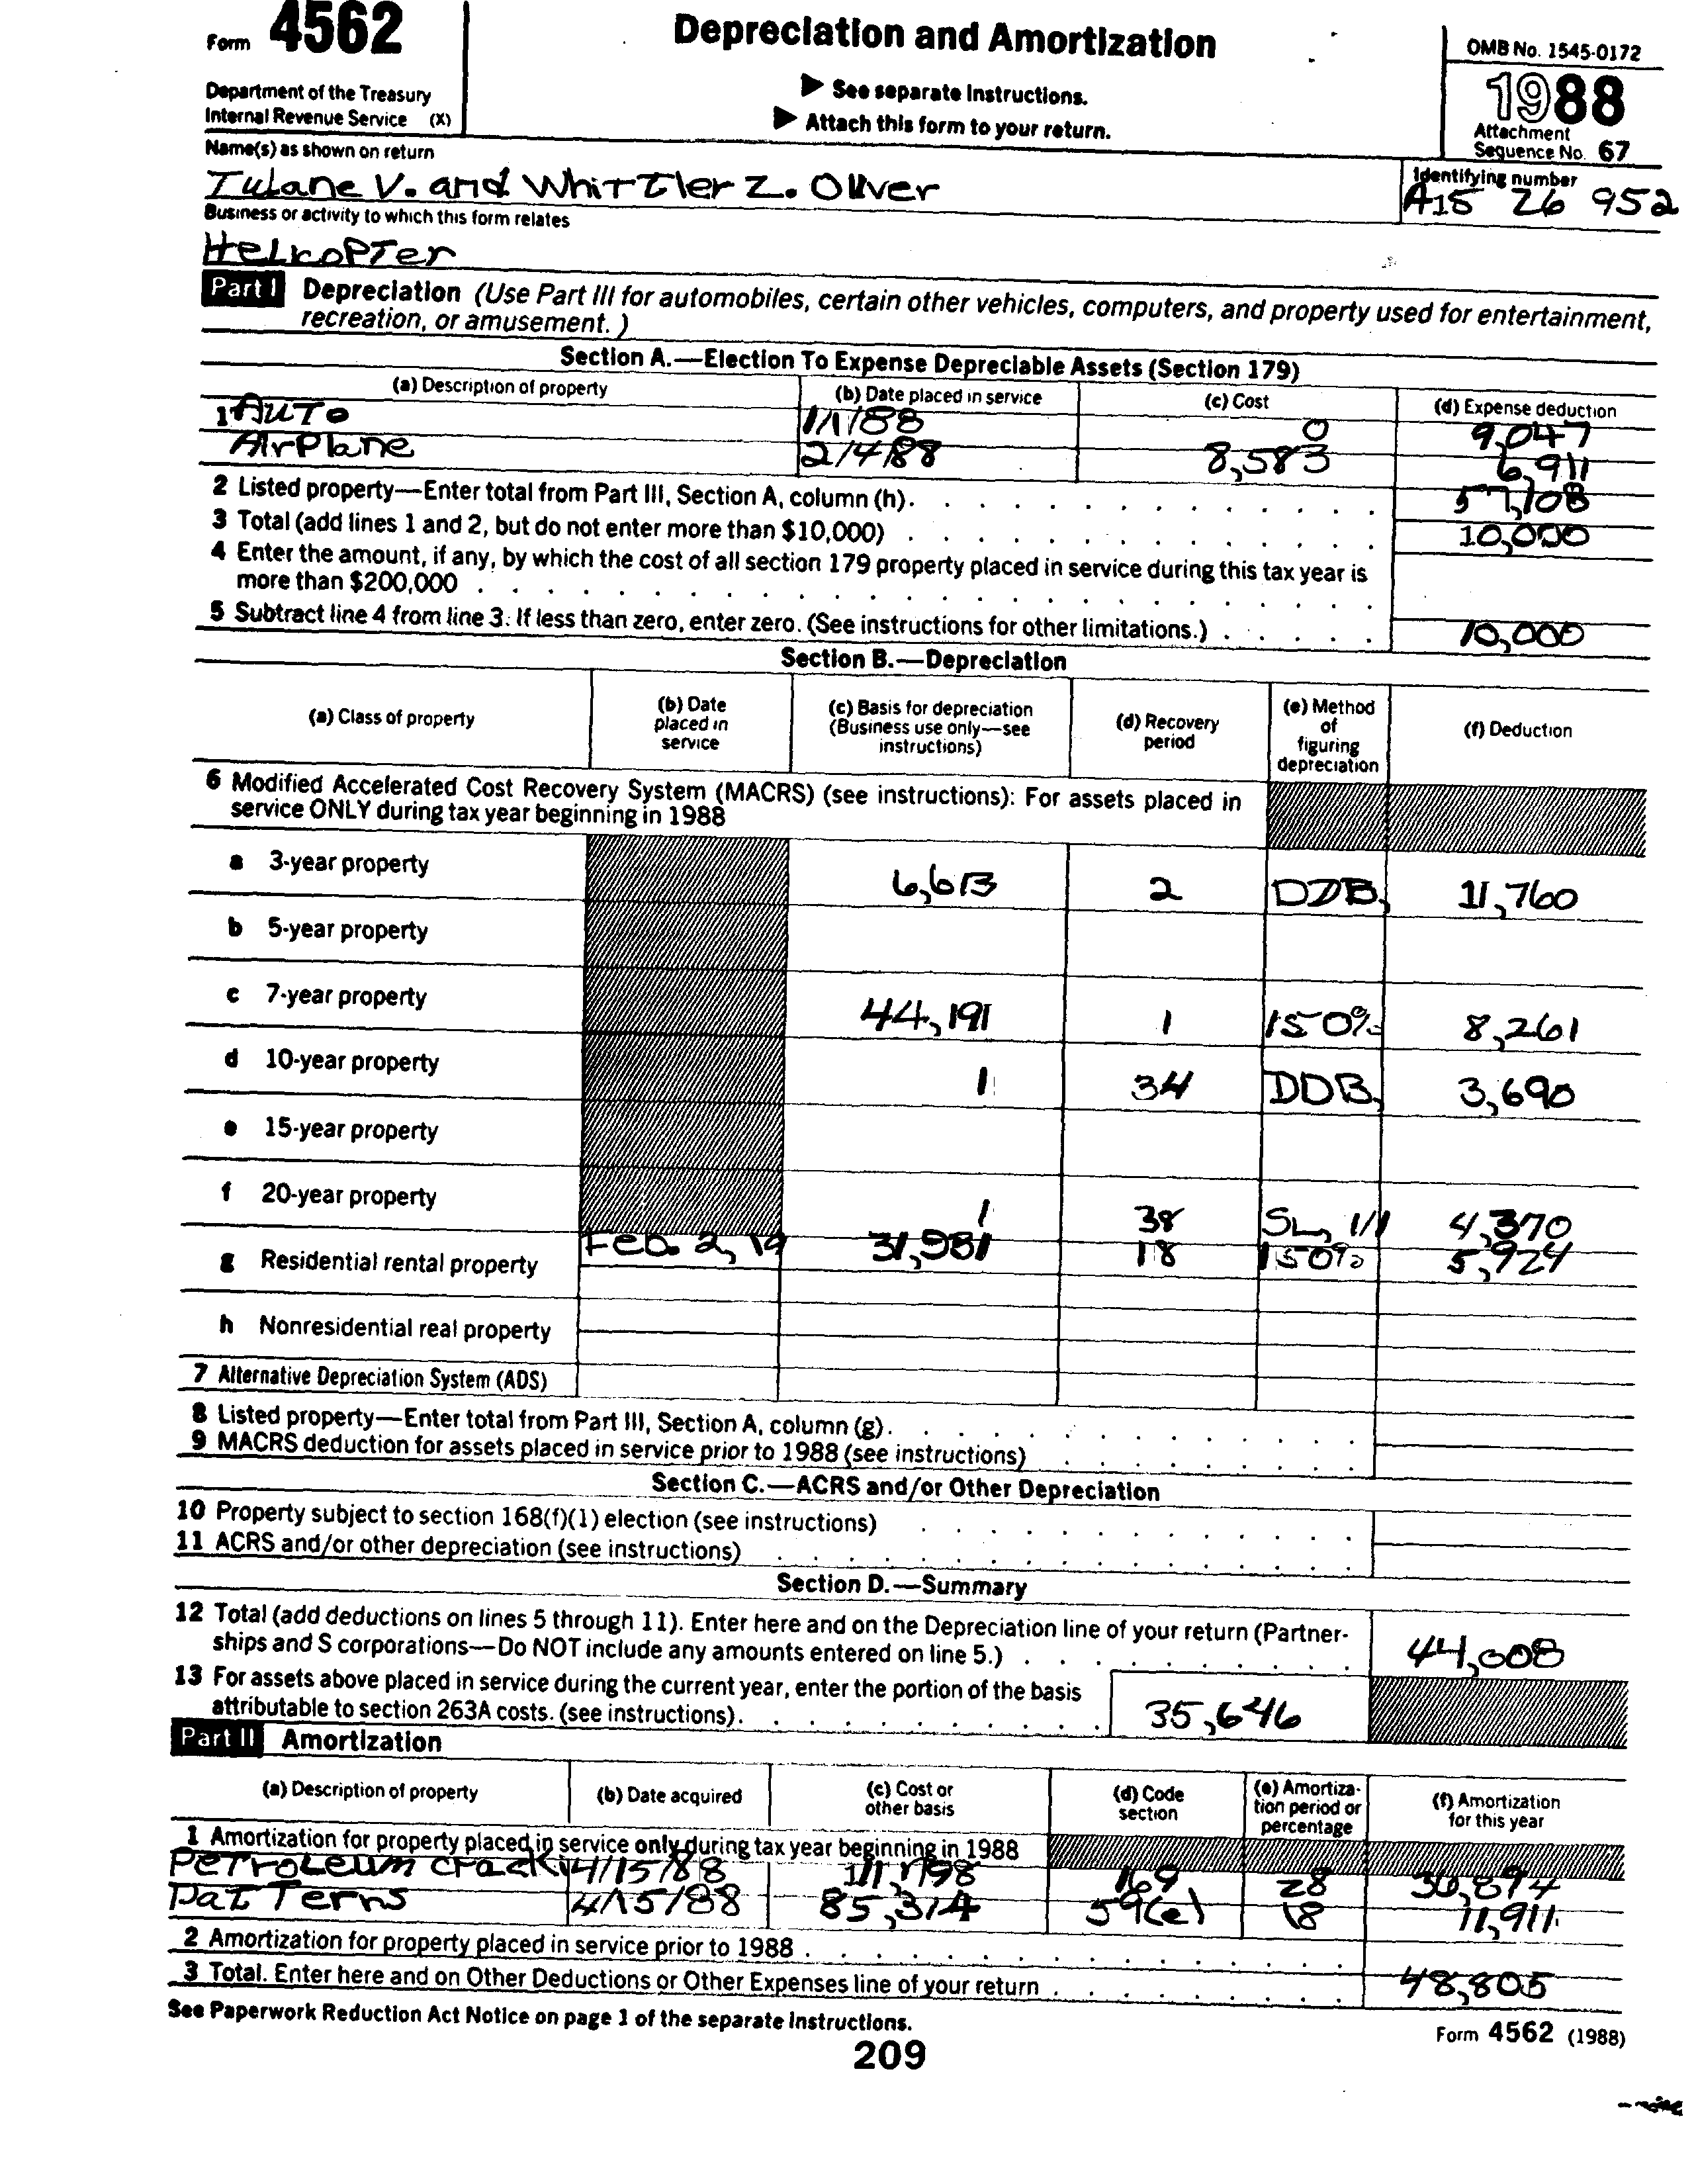 Form 4562
Depreciation and Amortization
OMB No. 1545-0172
1988
Department of the Treasury
Internal Revenue Service (X)
▶ See separate Instructions.
▶ Attach this form to your return.
Attachment
Sequence No. 67
Name(s) as shown on return
Identifying number
Tulane V. and Whittier Z. Oliver
A15 26 952
Business or activity to which this form relates
Helicopter
Part I Depreciation (Use Part III for automobiles, certain other vehicles, computers, and property used for entertainment,
recreation, or amusement.)
Section A.—Election To Expense Depreciable Assets (Section 179)
(a) Description of property (b) Date placed in service (c) Cost (d) Expense deduction
1 Auto 1/1/88 0 9,047
Airplane 2/4/88 8,583 6,911
2 Listed property—Enter total from Part III, Section A, column (h). 57,108
3 Total (add lines 1 and 2, but do not enter more than $10,000) 10,000
4 Enter the amount, if any, by which the cost of all section 179 property placed in service during this tax year is
more than $200,000
5 Subtract line 4 from line 3. If less than zero, enter zero. (See instructions for other limitations.) 10,000
Section B.—Depreciation
(a) Class of property (b) Date placed in service (c) Basis for depreciation (Business use only—see instructions) (d) Recovery period (e) Method of figuring depreciation (f) Deduction
6 Modified Accelerated Cost Recovery System (MACRS) (see instructions): For assets placed in
service ONLY during tax year beginning in 1988
a 3-year property 6,613 2 DDB, 11,760
b 5-year property
c 7-year property 44,191 1 150% 8,261
d 10-year property 1 34 DDB, 3,690
e 15-year property
f 20-year property 1 38 SL, 1/1 4,370
g Residential rental property Feb. 2, 19 31,981 18 150% 5,924
h Nonresidential real property
7 Alternative Depreciation System (ADS)
8 Listed property—Enter total from Part III, Section A, column (g).
9 MACRS deduction for assets placed in service prior to 1988 (see instructions)
Section C.—ACRS and/or Other Depreciation
10 Property subject to section 168(f)(1) election (see instructions)
11 ACRS and/or other depreciation (see instructions)
Section D.—Summary
12 Total (add deductions on lines 5 through 11). Enter here and on the Depreciation line of your return (Partner-
ships and S corporations—Do NOT include any amounts entered on line 5.) 44,008
13 For assets above placed in service during the current year, enter the portion of the basis
attributable to section 263A costs. (see instructions). 35,646
Part II Amortization
(a) Description of property (b) Date acquired (c) Cost or other basis (d) Code section (e) Amortization period or percentage (f) Amortization for this year
1 Amortization for property placed in service only during tax year beginning in 1988
Petroleum cracki 4/15/88 111,798 169 28 36,894
Patterns 4/15/88 85,314 59(e) 18 11,911
2 Amortization for property placed in service prior to 1988
3 Total. Enter here and on Other Deductions or Other Expenses line of your return 48,805
See Paperwork Reduction Act Notice on page 1 of the separate Instructions.
Form 4562 (1988)
209